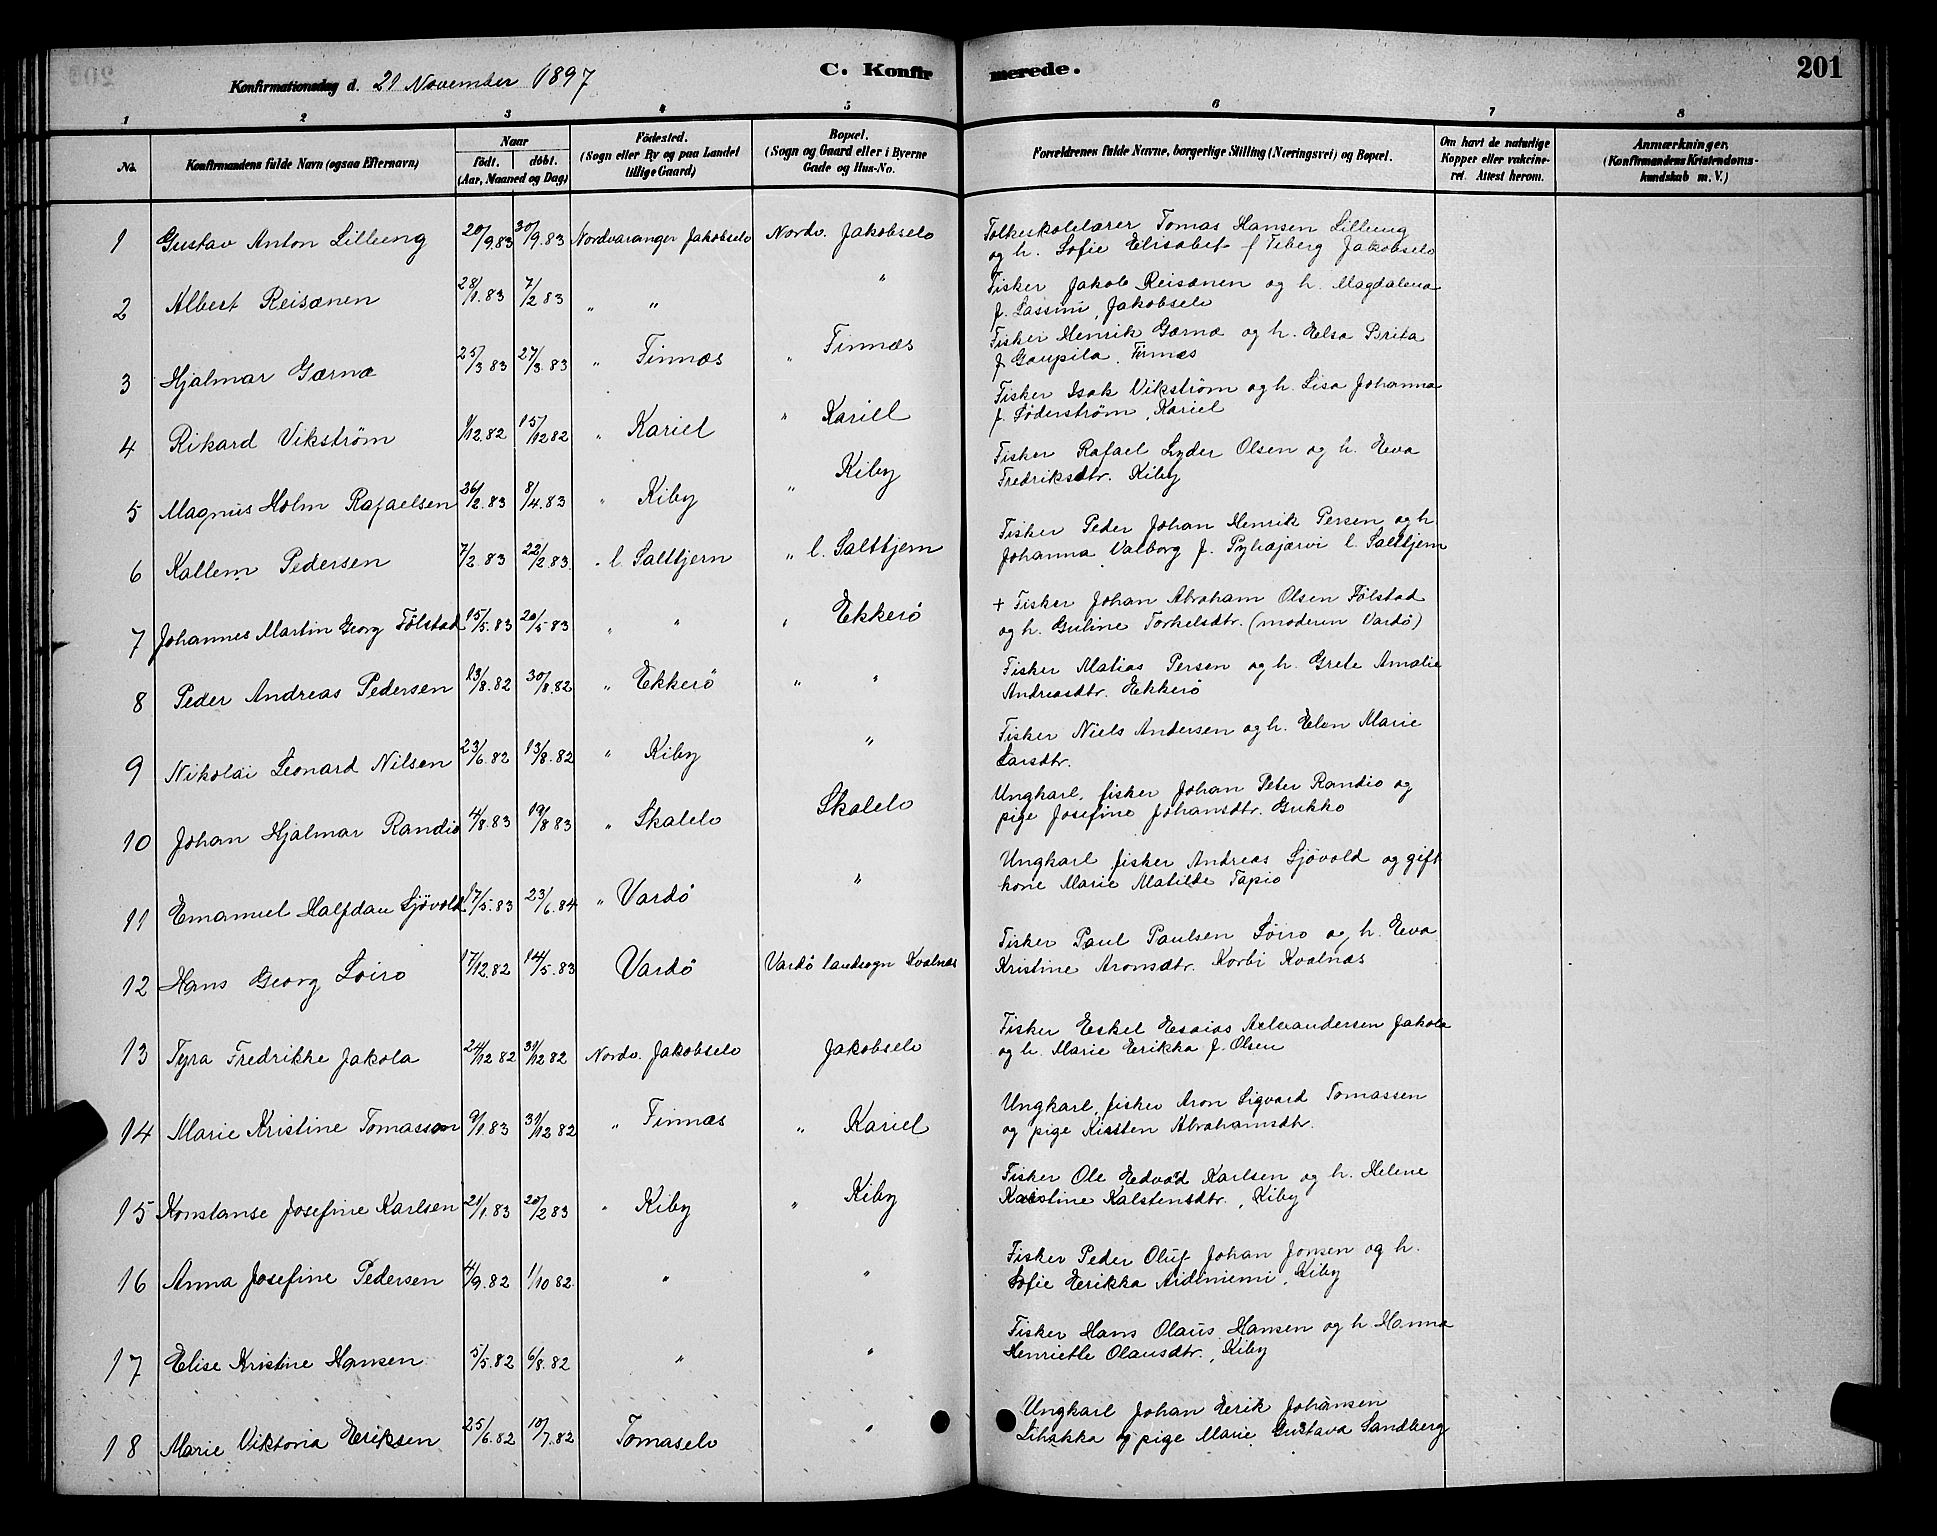 Konfirmationsdag d. 21 November 1897
C. Konfirmerede.
201
1 2 3 4 5 6 7 8
No.
Konfirmandens fulde Navn (ogsaa Efternavn)
Naar
födt. döbt.
(Aar, Maaned og Dag)
Födested.
(Sogn eller By og paa Landet
tillige Gaard)
Bopæl.
(Sogn og Gaard eller i Byerne
Gade og Hus-No.
Forældrenes fulde Navne, borgerlige Stilling (Næringsvei) og Bopæl.
Om havt de naturlige
Kopper eller vakcine-
ret. Attest herom.
Anmærkninger,
(Konfirmandens Kristendoms-
kundskab m. V.)
1 Gustav Anton Lilleeng 20/9.83 30/9.83 Nordvaranger Jakobselv Nordv. Jakobselv Folkeskolelærer Tomas Hansen Lilleeng
og h. Sofie Elisabet f Feberg Jakobselv
2 Albert Reisænen 28/1.83 7/2 83 " " " Fisker Jakob Reisænen og h. Magdalena
f. Lassini, Jakobselv
3 Hjalmar Gærnæ 25/3 83 27/3.83 " Finnæs " Finnæs Fisker Henrik Gærnæ og h. Elsa Brita
f Gaupila, Finnæs
4 Rikard Vikström 1/12.82 15/12 82 " Kariel " Kariel Fisker Isak Vikström og h. Lisa Johanna
f. Söderström, Kariel
5 Magnus Holm Rafaelsen 26/2.83 8/4.83 " Kiby " Kiby Fisker Rafael Lyder Olsen og h. Eva
Fredriksdtr. Kiby
6 Kallem Pedersen 7/2.83 22/2.83 " l. Saltbjern " l. Saltbjern Fisker Peder Johan Henrik Persen og h.
Johanna Valborg f. Pyhæjærvi l. Saltbjern
7 Johannes Martin Georg Fölstad 15/5.83 20/5 83 " " " Ekkerö + Fisker Johan Abraham Olsen Fölstad
og h. Guline Torkelsdtr. (moderen Vardö)
8 Peder Andreas Pedersen 13/8.82 30/8.82 " Ekkerö " " Fisker Matias Persen og h. Grete Amalie
Andreasdtr. Ekkerö
9 Nikolai Leonard Nilsen 23/6.82 13/8.82 " Kiby " Fisker Niels Andersen og h. Elen Marie
Larsdtr.
10 Johan Hjalmar Randio 4/8.83 19/8 83 " Skalelv Skalelv Ungkarl, fisker Johan Peter Randio og
pige Josefine Johansdtr. Gukko
11 Emanuel Halfdan Sjövold 17/5.83 23/6.84 " Vardö " Ungkarl fisker Andreas Sjövold og gift
kone Marie Matilde Tapio
12 Hans Georg Soiro 17/12.82 14/5.83 Vardö Vardö landsogn Kvalnæs Fisker Paul Paulsen Soiro og h. Eva
Kristine Aronsdtr. Korbi Kvalnæs
13 Tyra Fredrikke Jakola 24/12 82 31/12 82 Nordv. Jakobselv Jakobselv Fisker Eskel Esaias Aleksandersen Jakola
og h. Marie Erikka f. Olsen
14 Marie Kristine Tomassen 9/1.83 31/12 82 " Finnæs " Kariel Ungkarl, fisker Aron Sigvard Tomassen
og pige Kirsten Abrahamsdtr.
15 Konstanse Josefine Karlsen 21/1.83 20/2 83 " Kiby " Kiby Fisker Ole Edvard Karlsen og h. Helene
Kristine Kalstensdtr., Kiby
16 Anna Josefine Pedersen 4/9.82 1/10 82 " " Fisker Peder Oluf Johan Jonsen og h.
Sofie Erikka Aidiniemi, Kiby
17 Elise Kristine Hansen 5/5.82 6/8.82 " " Fisker Hans Olaus Hansen og h Hanna
Henriette Olausdtr., Kiby
18 Marie Viktoria Eriksen 25/6.82 10/7.82 Tomaselv " Ungkarl Johan Erik Johansen
Lihakka og pige Marie Gustava Sandberg